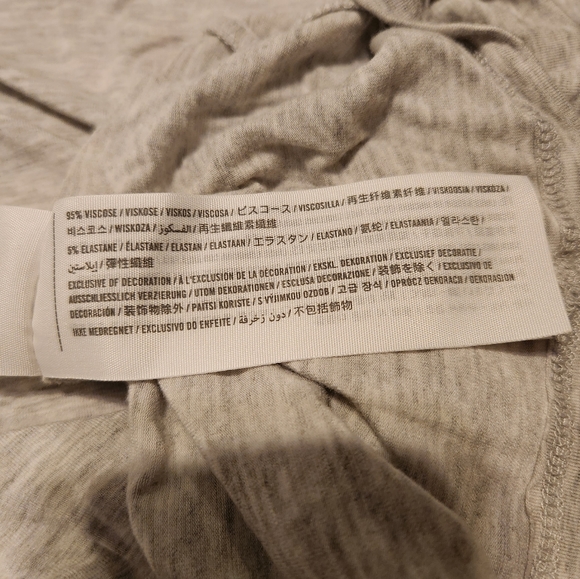 95% VISCOSE / VISKOSE / VISKOS / VISCOSA / ビスコース / VISCOSILLA / 再生纤维素纤维 / VISKOOSIA / VISKÓZA /
비스코스 / WISKOZA / الفسكوز / 再生纖維素纖維
5% ELASTANE / ÉLASTANE / ELASTAN / ELASTAAN / エラスタン / ELASTANO / 氨纶 / ELASTAANIA / 엘라스탄 /
إيلاستين / 彈性纖維
EXCLUSIVE OF DECORATION / À L'EXCLUSION DE LA DÉCORATION / EKSKL. DEKORATION / EXCLUSIEF DECORATIE /
AUSSCHLIESSLICH VERZIERUNG / UTOM DEKORATIONEN / ESCLUSA DECORAZIONE / 装飾を除く / EXCLUSIVO DE
DECORACIÓN / 装饰物除外 / PAITSI KORISTE / S VÝJIMKOU OZDOB / 고급 장식 / OPRÓCZ DEKORACJI / DEKORASJON
IKKE MEDREGNET / EXCLUSIVO DO ENFEITE / دون زخرفة / 不包括飾物